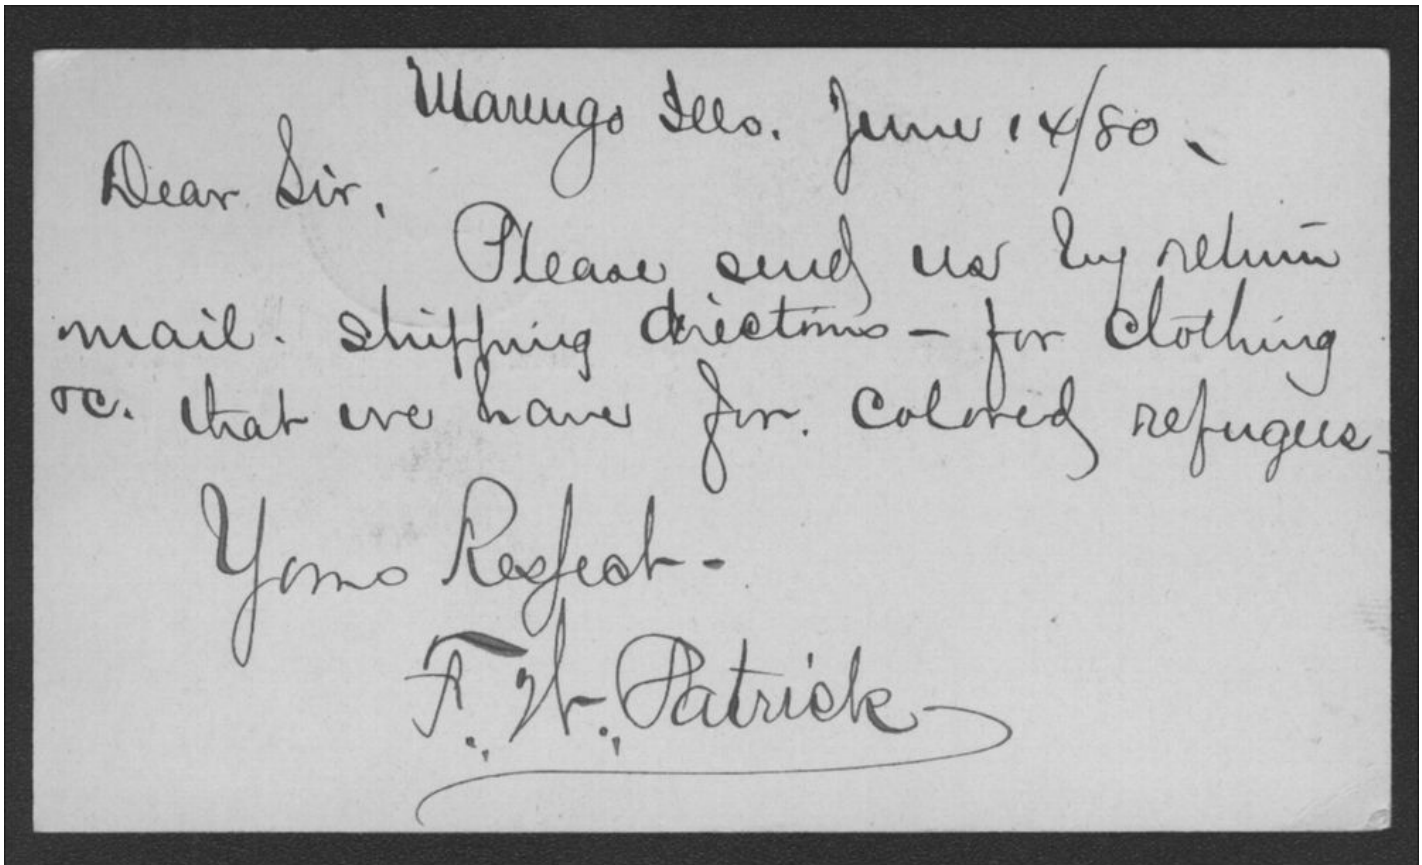 Marengo Ills. June 14/80.
Dear Sir,
Please send us by return
mail. shipping directions - for clothing
&c. that we have for. colored refugees.
Yours Respect-
F. W. Patrick